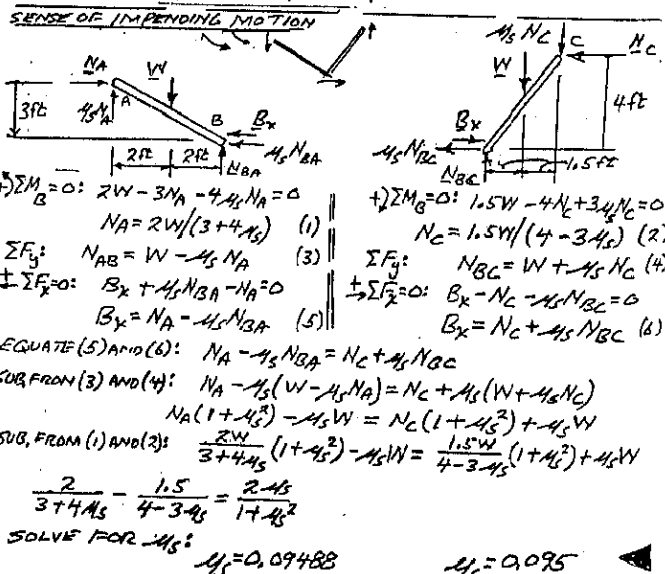 SENSE OF IMPENDING MOTION
N_A
W
3ft
μ_s N_A
A
B
B_x
μ_s N_BA
2ft
2ft
N_BA
μ_s N_C
C
N_C
W
4ft
B_x
μ_s N_BC
N_BC
1.5ft
+) ΣM_B=0: 2W - 3N_A - 4μ_s N_A = 0
N_A = 2W/(3+4μ_s) (1)
ΣF_y: N_AB = W - μ_s N_A (3)
+→ ΣF_x=0: B_x + μ_s N_BA - N_A = 0
B_x = N_A - μ_s N_BA (5)
+) ΣM_B=0: 1.5W - 4N_C + 3μ_s N_C = 0
N_C = 1.5W/(4-3μ_s) (2)
ΣF_y: N_BC = W + μ_s N_C (4)
+→ ΣF_x=0: B_x - N_C - μ_s N_BC = 0
B_x = N_C + μ_s N_BC (6)
EQUATE (5) AND (6): N_A - μ_s N_BA = N_C + μ_s N_BC
SUB, FROM (3) AND (4): N_A - μ_s (W - μ_s N_A) = N_C + μ_s (W + μ_s N_C)
N_A (1+μ_s²) - μ_s W = N_C (1+μ_s²) + μ_s W
SUB, FROM (1) AND (2): 2W/(3+4μ_s) (1+μ_s²) - μ_s W = 1.5W/(4-3μ_s) (1+μ_s²) + μ_s W
2/(3+4μ_s) - 1.5/(4-3μ_s) = 2μ_s/(1+μ_s²)
SOLVE FOR μ_s:
μ_s = 0.09488 μ_s = 0.095